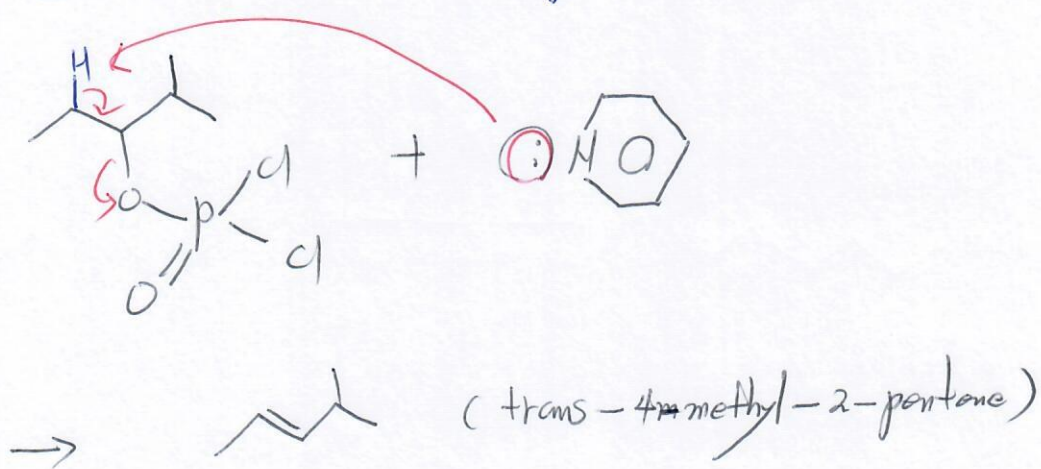 H
+ : N
O P Cl
Cl
O
→ (trans-4-methyl-2-pentene)